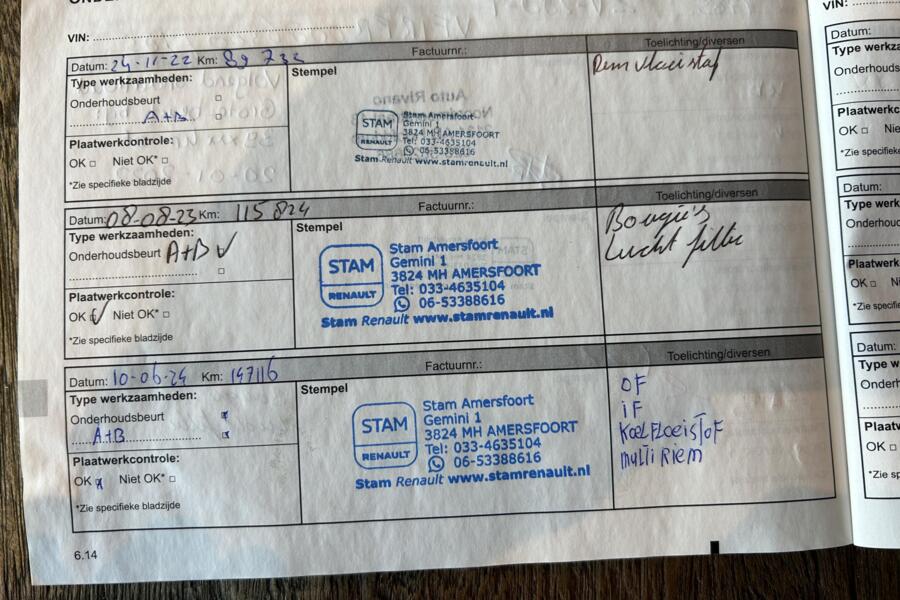 VIN:
Datum: 24-11-22 Km: 89 733
Factuurnr.:
Toelichting/diversen
Type werkzaamheden:
Onderhoudsbeurt
A+B
Plaatwerkcontrole:
OK Niet OK*
*Zie specifieke bladzijde
Stempel
STAM
RENAULT
Stam Amersfoort
Gemini 1
3824 MH AMERSFOORT
Tel: 033-4635104
06-53388616
Stam Renault www.stamrenault.nl
Rem vloeistof
Datum: 08-08-23 Km: 115 824
Factuurnr.:
Toelichting/diversen
Type werkzaamheden:
Onderhoudsbeurt A+B
Plaatwerkcontrole:
OK Niet OK*
*Zie specifieke bladzijde
Stempel
STAM
RENAULT
Stam Amersfoort
Gemini 1
3824 MH AMERSFOORT
Tel: 033-4635104
06-53388616
Stam Renault www.stamrenault.nl
Bougie's
Lucht filter
Datum: 10-06-24 Km: 147116
Factuurnr.:
Toelichting/diversen
Type werkzaamheden:
Onderhoudsbeurt
A+B
Plaatwerkcontrole:
OK Niet OK*
*Zie specifieke bladzijde
Stempel
STAM
RENAULT
Stam Amersfoort
Gemini 1
3824 MH AMERSFOORT
Tel: 033-4635104
06-53388616
Stam Renault www.stamrenault.nl
OF
iF
KoelFloeisToF
mulTi Riem
6.14
VIN:
Datum:
OK
Datum:
OK
Datum:
OK